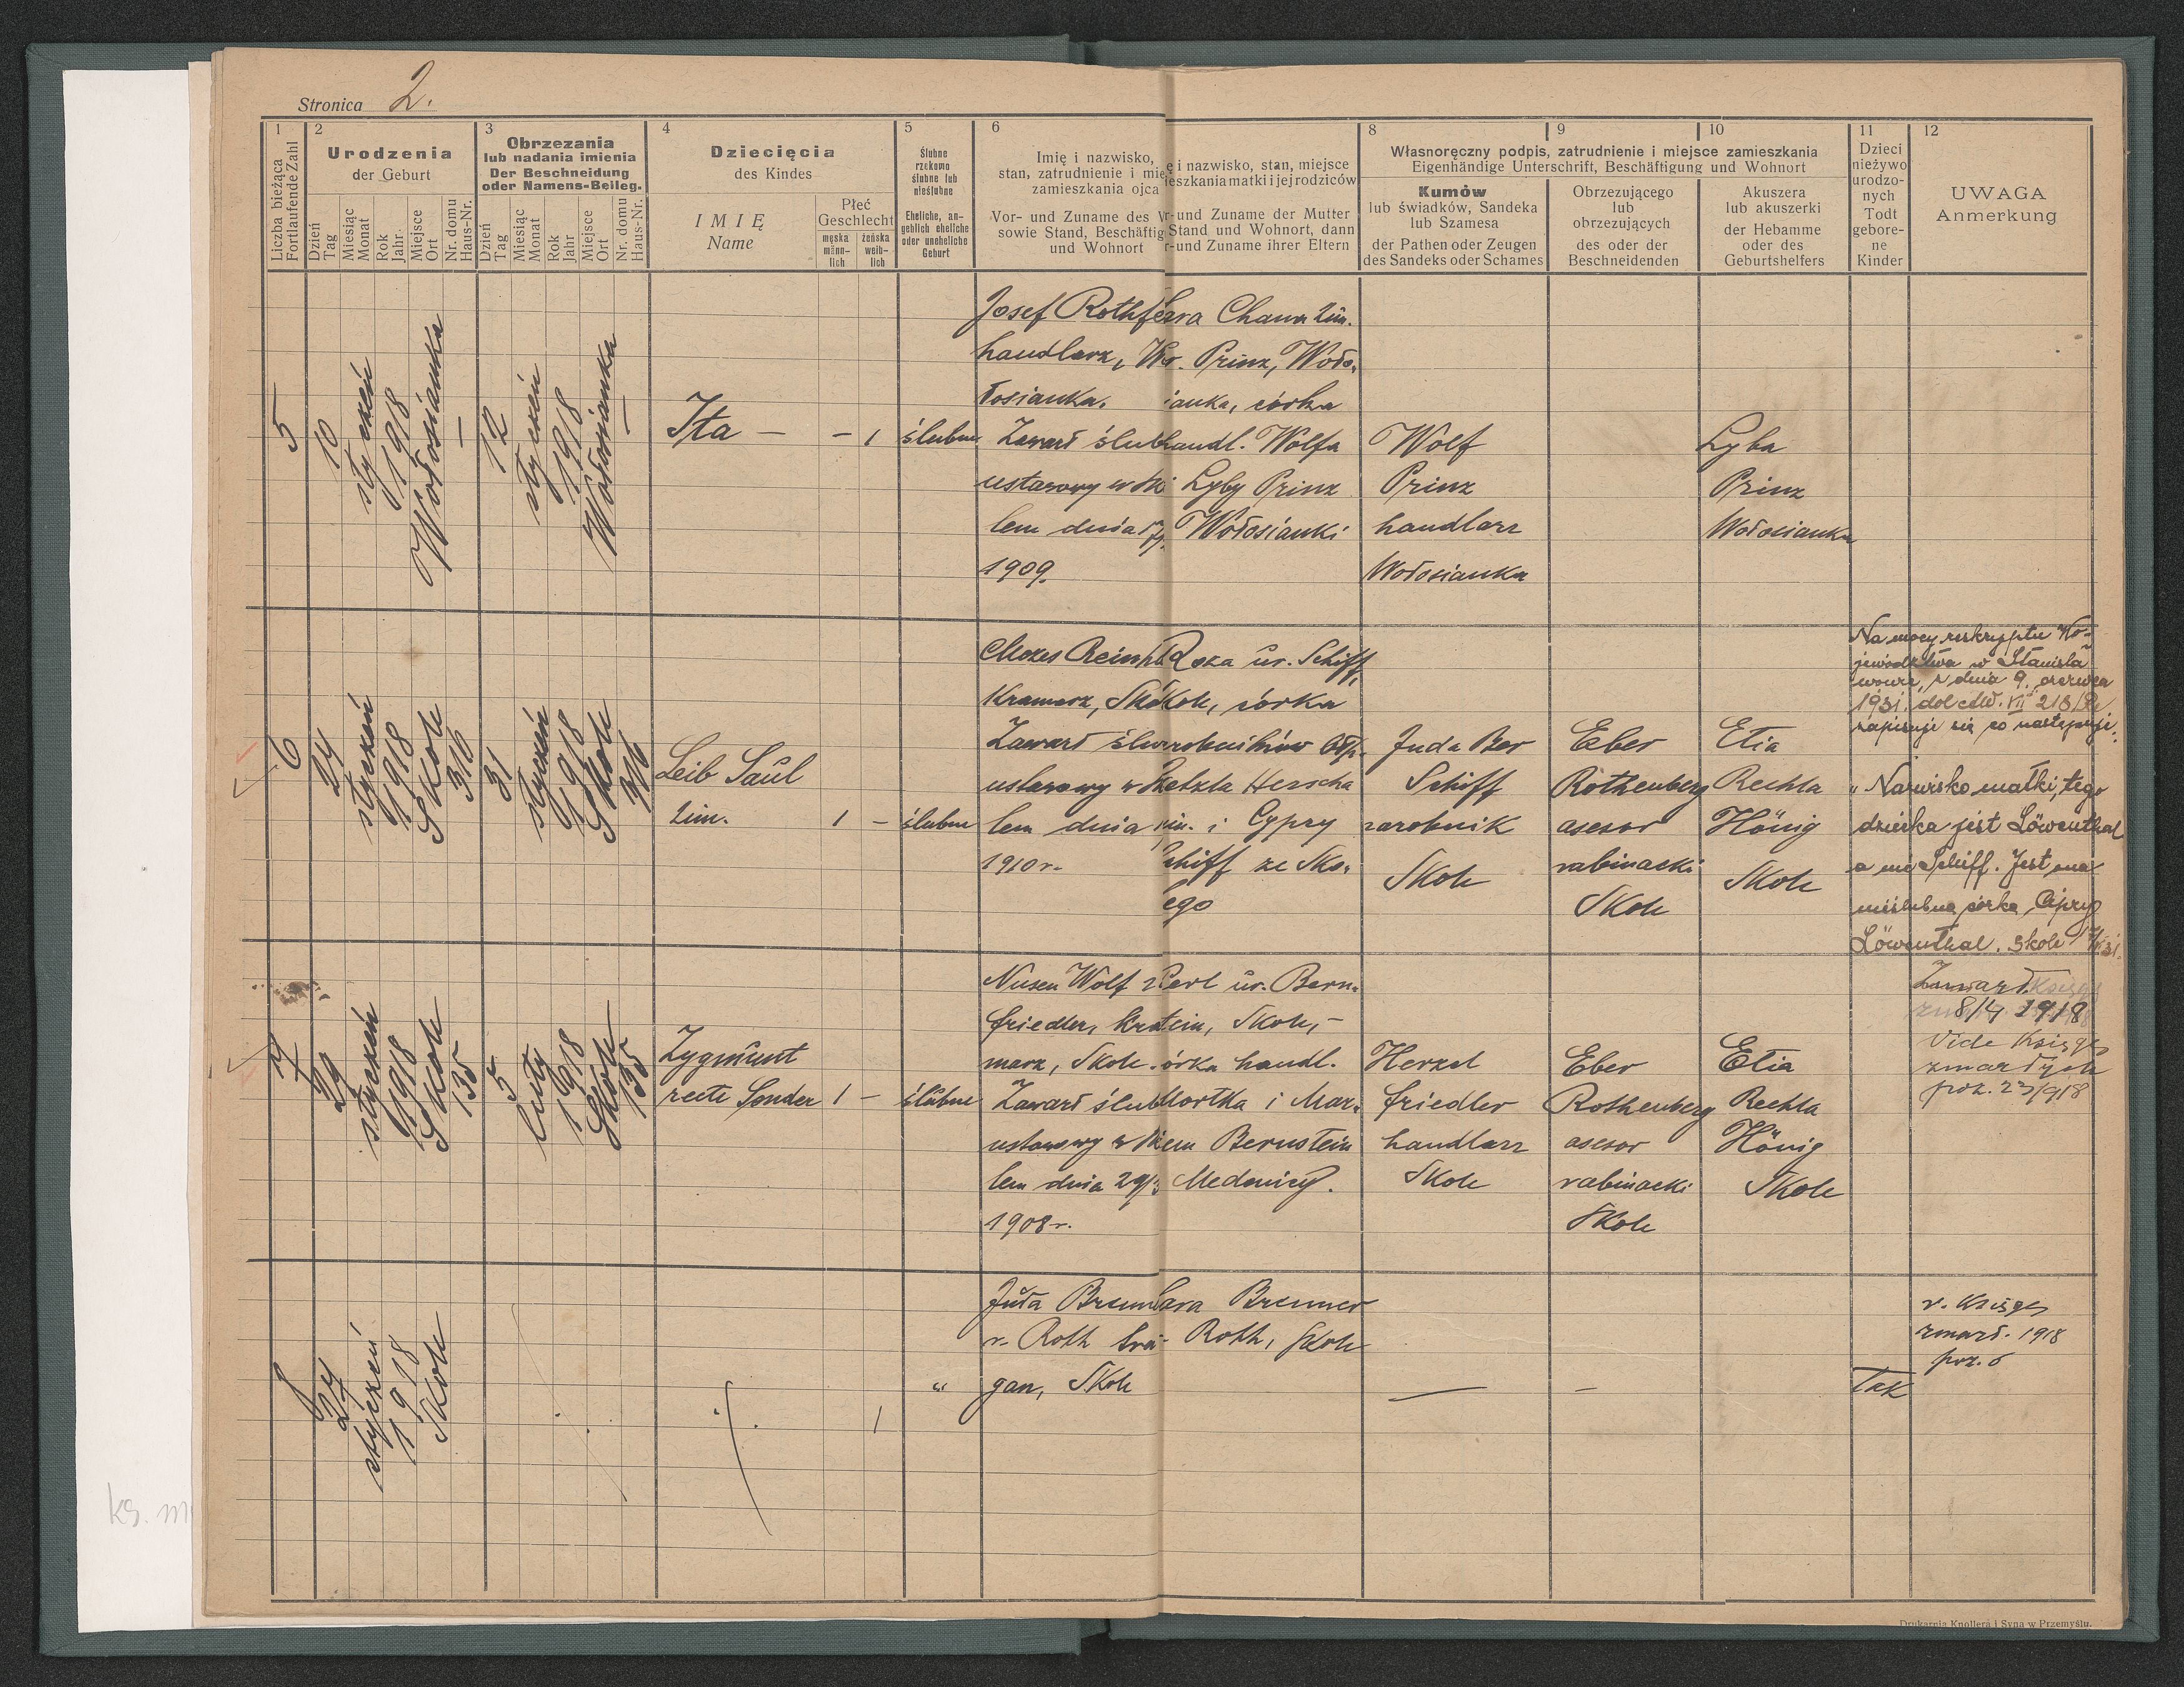 Stronica 2.
1
Liczba bieżąca
Fortlaufende Zahl
2
Urodzenia
der Geburt
Dzień
Tag
Miesiąc
Monat
Rok
Jahr
Miejsce
Ort
Nr. domu
Haus-Nr.
3
Obrzezania
lub nadania imienia
Der Beschneidung
oder Namens-Beileg.
Dzień
Tag
Miesiąc
Monat
Rok
Jahr
Miejsce
Ort
Nr. domu
Haus-Nr.
4
Dziecięcia
des Kindes
IMIĘ
Name
Płeć
Geschlecht
męska
männ-
lich
żeńska
weib-
lich
5
Ślubne
rzekomo
ślubne lub
nieślubne
Eheliche, an-
geblich eheliche
oder uneheliche
Geburt
6
Imię i nazwisko,
stan, zatrudnienie i mie
zamieszkania ojca
Vor- und Zuname des V
sowie Stand, Beschäftig
und Wohnort
ę i nazwisko, stan, miejsce
ieszkania matki i jej rodziców
r- und Zuname der Mutter
Stand und Wohnort, dann
r-und Zuname ihrer Eltern
8
9
10
Własnoręczny podpis, zatrudnienie i miejsce zamieszkania
Eigenhändige Unterschrift, Beschäftigung und Wohnort
Kumów
lub świadków, Sandeka
lub Szamesa
der Pathen oder Zeugen
des Sandeks oder Schames
Obrzezującego
lub
obrzezujących
des oder der
Beschneidenden
Akuszera
lub akuszerki
der Hebamme
oder des
Geburtshelfers
11
Dzieci
nieżywo
urodzo-
nych
Todt
gebore-
ne
Kinder
12
UWAGA
Anmerkung
5
10
styczeń
1918
Wołosianka
—
12
styczeń
1918
Wołosianka
—
Ita —
— 1
ślubne
Josef Rothf
handlarz, Wo
łosianka.
Zawarł ślub
ustawowy w Sko
lem dnia
1909.
Sara Chana 2im.
Prinz, Woło-
ianka, córka
handl. Wolfa
Lyby Prinz
Wołosianki
Wolf
Prinz
handlarz
Wołosianka
Lyba
Prinz
Wołosianka
6
24
styczeń
1918
Skole
316
31
styczeń
1918
Skole
316
Leib Saul
2im.
1 —
ślubne
Mozes Reinh
Kramarz, Sko
Zawarł ślu
ustawowy w
lem dnia
1910 r.
Roza ur. Schiff,
Skole, córka
zarobników
Herscha
i Cypry
Schiff ze Sko-
ego
Juda Ber
Schiff
zarobnik
Skole
Eber
Rothenberg
asesor
rabinacki
Skole
Etia
Rechla
Hönig
Skole
Na mocy reskryptu Wo-
jewództwa w Stanisła-
wowie, z dnia 9. czerwca
1931.
zapisuje się co następuje:
„Nazwisko matki, tego
dziecka jest Löwenthal
a nie Schiff. Jest ona
nieślubna córka Cipry
Löwenthal. Skole
7
29
styczeń
1918
Skole
135
5
luty
1918
Skole
135
Zygmunt
recte Sender
1 —
ślubne
Nusen Wolf
friedler, kra
marz, Skole.
Zawarł ślub
ustawowy w
lem dnia 29/3
1908 r.
Perl ur. Bern-
stein, Skole, -
córka handl.
Mortka i Mar-
jem Bernstein
Medenicy.
Herzel
friedler
handlarz
Skole
Eber
Rothenberg
asesor
rabinacki
Skole
Etia
Rechla
Hönig
Skole
Zmarł.
8/4 1918
Vide Księgę
zmarłych
poz. 23/918
8
27
styczeń
1918
Skole
1
"
Juda Brenn
v. Roth
gan, Skole
Sara Brenner
Roth, Skole
—
—
Tak
v. Księgę
zmarł. 1918
poz. 6
ks. m
Drukarnia Knollera i Syna w Przemyślu.